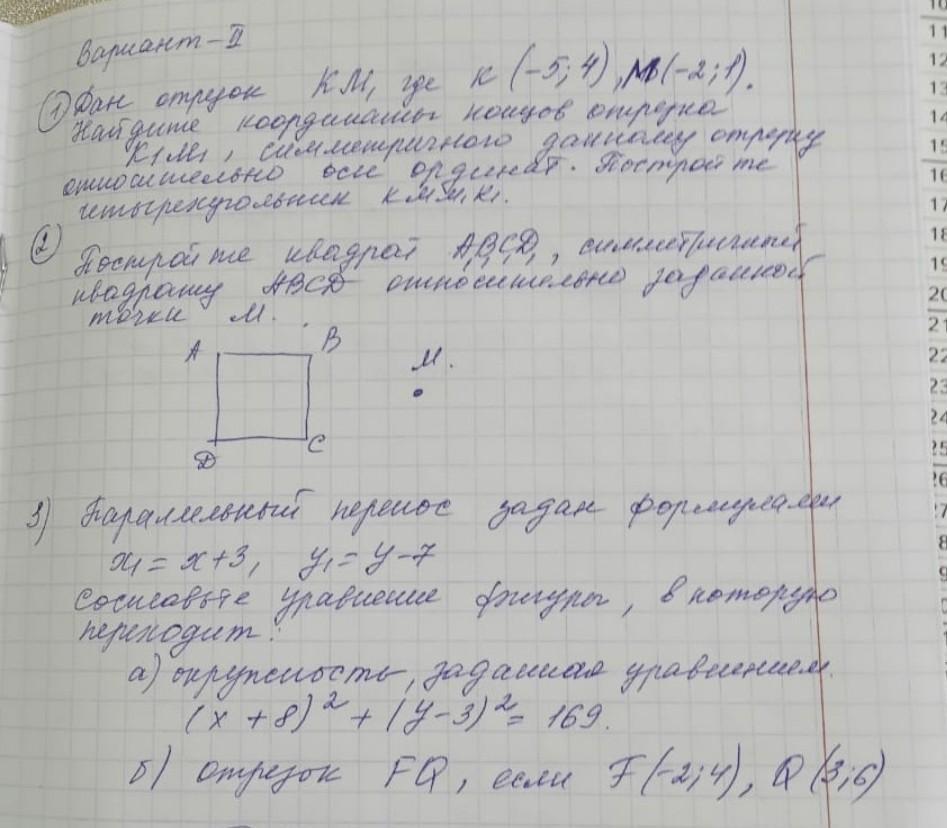 Вариант-II
① Дан отрезок KM, где K (-5; 4), M (-2; 1).
Найдите координаты концов отрезка
K₁M₁, симметричного данному отрезку
относительно оси ординат. Постройте
четырехугольник KMM₁K₁.
② Постройте квадрат A₁B₁C₁D₁, симметричный
квадрату ABCD относительно заданной
точки M.
A B M.
D C
3) Параллельный перенос задан формулами
x₁ = x+3, y₁ = y-7
Составьте уравнение фигуры, в которую
переходит:
а) окружность, заданная уравнением.
(x + 8)² + (y-3)² = 169.
б) отрезок FQ, если F(-2; 4), Q (3; 6)
10
11
12
13
14
15
16
17
18
19
20
21
22
23
24
25
26